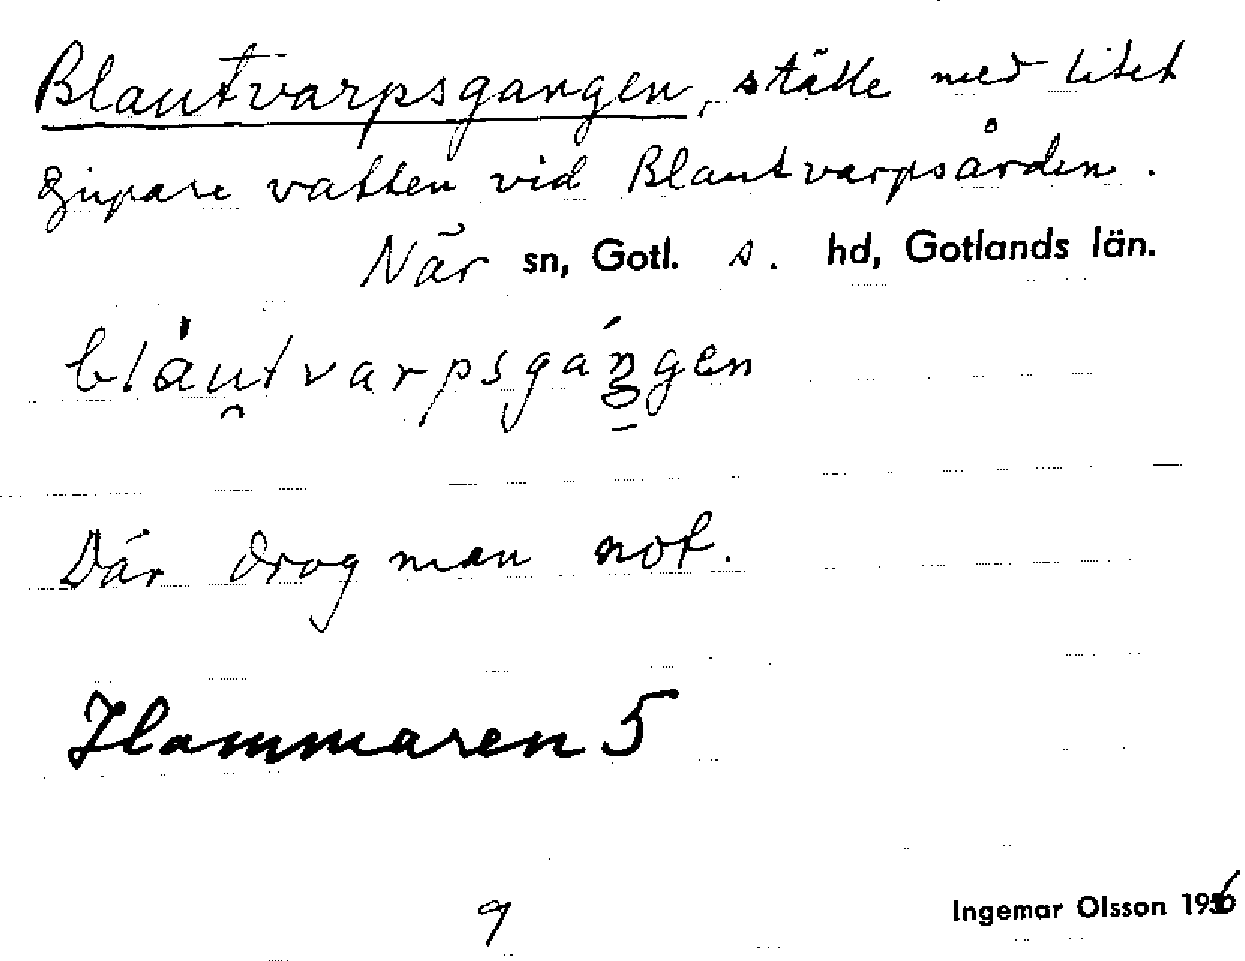 Blautvarpsgangen, ställe med litet
djupare vatten vid Blautvarpsården.
När sn, Gotl. s. hd, Gotlands län.
bláutvarpsgángen
Där drog man not.
Hammaren 5
9
Ingemar Olsson 1956